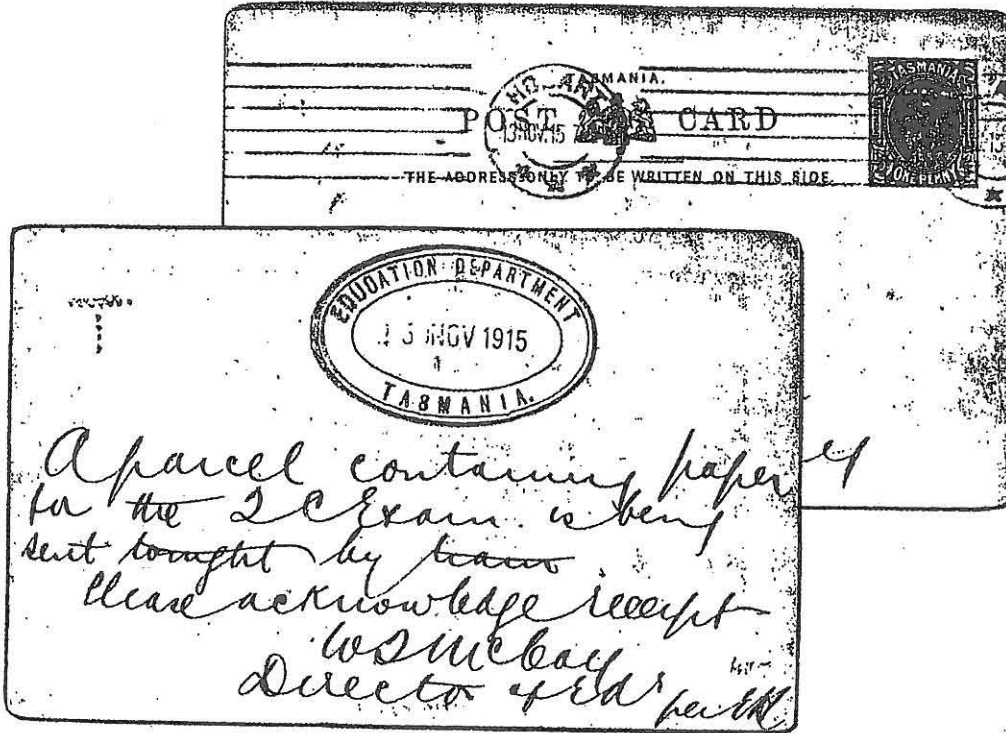 TASMANIA.
POST CARD
HOBART
13 NOV. 15
THE ADDRESS ONLY TO BE WRITTEN ON THIS SIDE.
TASMANIA
ONE PENNY
EDUCATION DEPARTMENT
NOV 1915
TASMANIA.
A parcel containing papers
for the Exam is being
sent tonight by train
Please acknowledge receipt
Director of Edn
per